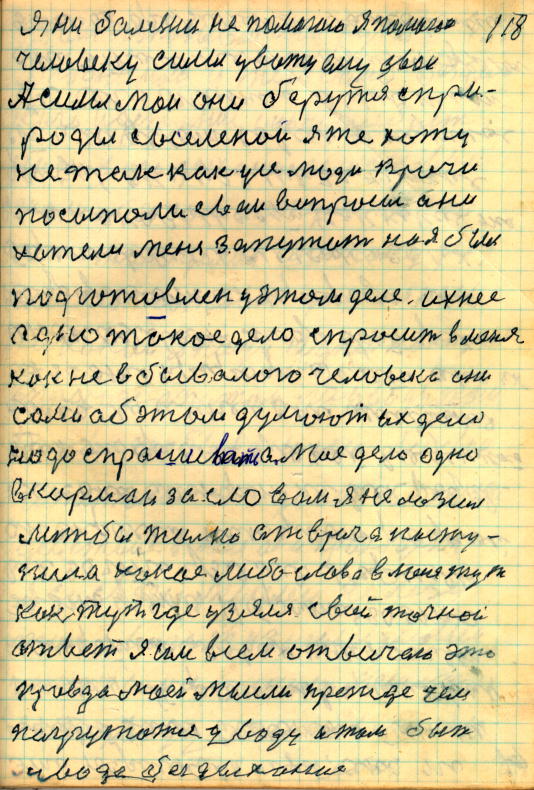 Я ни балезни не помогаю я помогаю 118
человеку сили увожу ему свои
А сили мои они берутся спри-
роди свселеной я же хожу
не так как усе люди врачи
посыполи сваи вопроси ани
хатели меня запутат но я был
подготовлен у этом деле. ихнее
одно токое дело спросит в меня
как не в бывалого человека они
сами аб этом думоют их дело
надо спрашивать а мое дело одно
вкарман за словам я не лозил
лиж бы толко от врача посту-
пила какое либо слово в меня тут
как тут где узялся свой точной
ответ я им всем отвичаю это
правда моей мысли прежде чем
погружотся у воду а там быт
у воде без дыхания